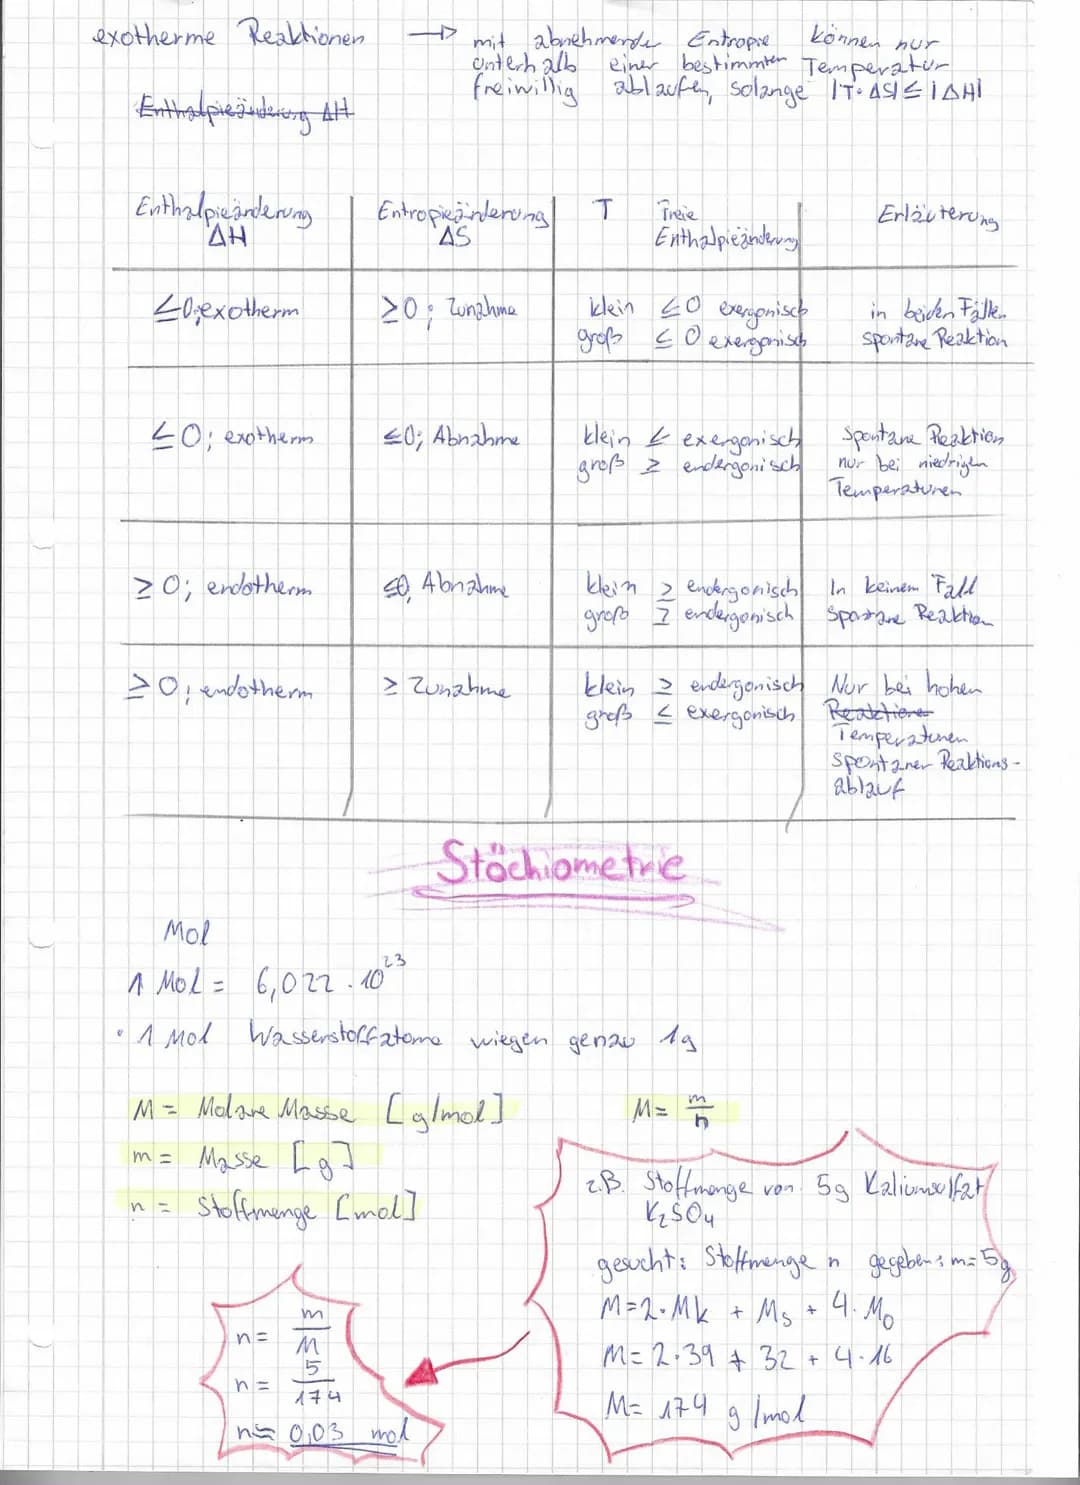 exotherme Reaktionen → mit abnehmender Entropie können nur
unterhalb einer bestimmten Temperatur
freiwillig ablaufen, solange |T·ΔS| ≤ |ΔH|
Enthalpieänderung ΔH
Enthalpieänderung ΔH | Entropieänderung ΔS | T | Freie Enthalpieänderung | Erläuterung
≤0; exotherm | ≥0; Zunahme | klein ≤0 exergonisch | in beiden Fällen
groß ≤0 exergonisch | spontane Reaktion
≤0; exotherm | ≤0; Abnahme | klein ≤ exergonisch | Spontane Reaktion
groß ≥ endergonisch | nur bei niedrigen
Temperaturen
≥0; endotherm | ≤0, Abnahme | klein ≥ endergonisch | In keinem Fall
groß ≥ endergonisch | spontane Reaktion
≥0; endotherm | ≥ Zunahme | klein ≥ endergonisch | Nur bei hohen
groß ≤ exergonisch | Reaktionen
Temperaturen
spontaner Reaktions-
ablauf
Stöchiometrie
Mol
1 Mol = 6,022 · 10²³
· 1 Mol Wasserstoffatome wiegen genau 1g
M = Molare Masse [g/mol] M = m/n
m = Masse [g]
n = Stoffmenge [mol]
z.B. Stoffmenge von 5g Kaliumsulfat
K₂SO₄
gesucht: Stoffmenge n gegeben: m = 5g
M = 2·Mk + Ms + 4·Mo
M = 2·39 + 32 + 4·16
M = 174 g/mol
n = m/M
n = 5/174
n ≈ 0,03 mol